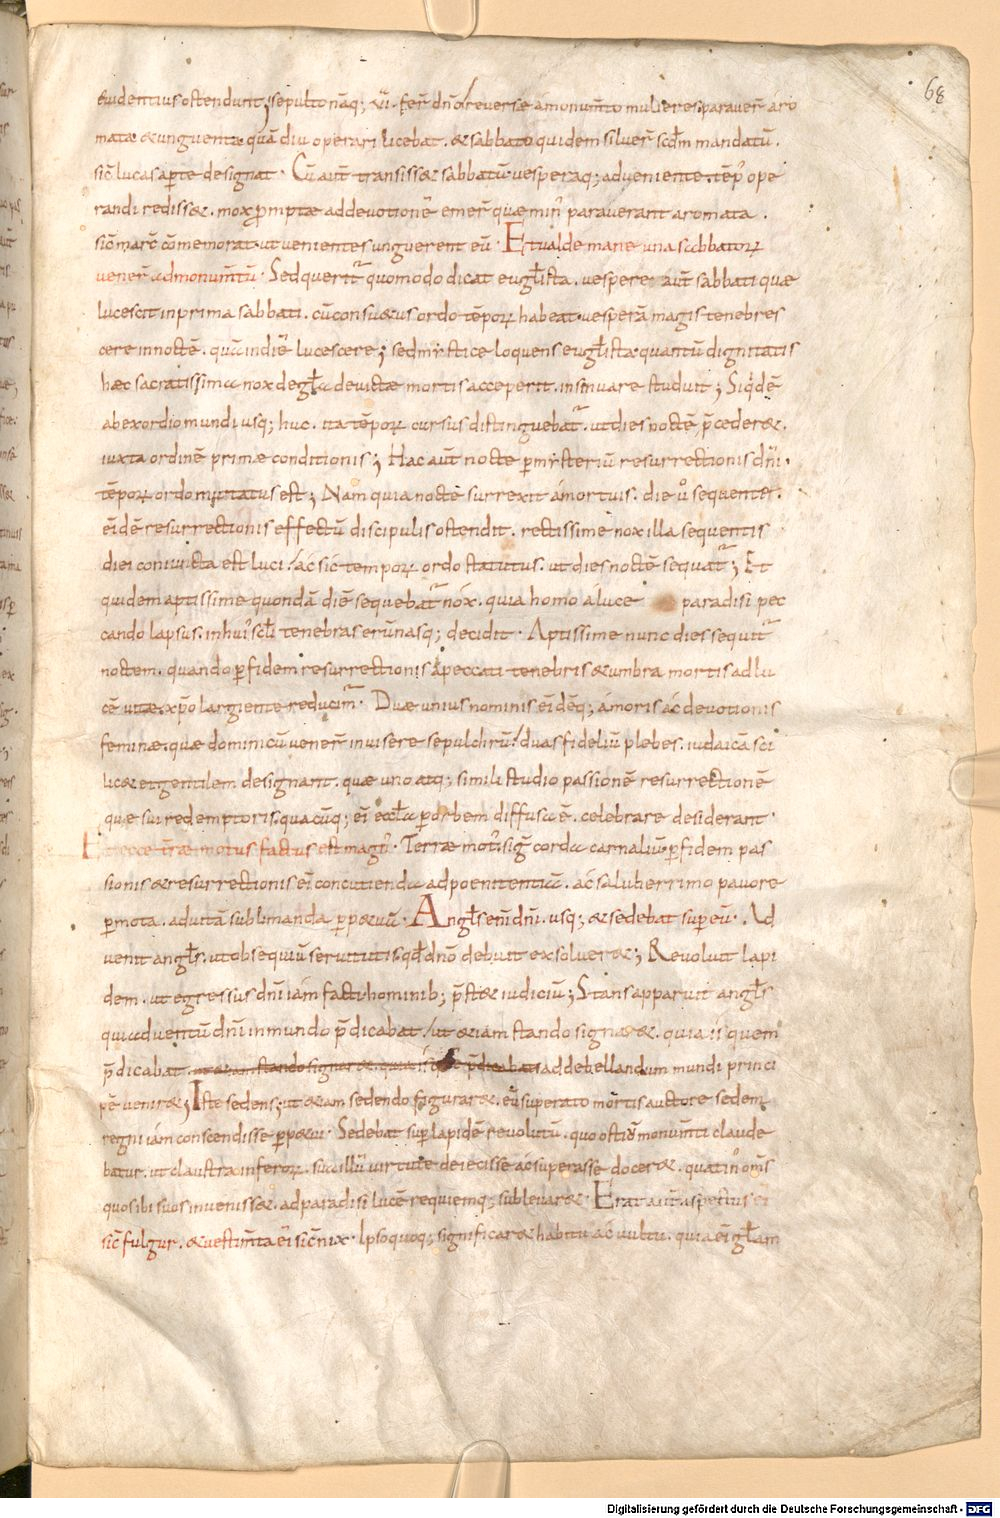 68
euidentius ostendunt; sepulto nāq; ... dn̄o reuersæ a monum̄to mulieres parauer̄ aro
matæ & unguenta quā diu operari licebat . & sabbato quidem siluer̄ scd̄m mandatū .
sic̄ lucas aperte designat . Cū aut̄ transiss& sabbatū uesperaq; adueniente tēp̄r ope
randi rediss& . mox promptæ ad deuotionē emer̄ quæ min̄ parauerant aromata .
sic̄ marc̄ cōmemorat ut uenientes unguerent eū . Et ualde mane una sabbatoꝝ
uener̄ ad monum̄tū . Sed querit̄ quomodo dicat eugl̄ista . uespere aut̄ sabbati quæ
lucescit in prima sabbati . cū consu&us ordo tēpoꝝ habeat uesperā magis tenebres
cere in noctē . quā in diē lucescere ; sed mystice loquens eugl̄ista quantū dignitatis
hæc sacratissima nox de gl̄a deuictæ mortis acceperit . insinuare studuit ; Siqdē
ab exordio mundi usq; huc . ita tēpoꝝ cursus distinguebat̄ . ut dies noctē p̄ceder& .
iuxta ordinē primæ conditionis ; Hac aut̄ nocte p̱ mysteriū resurrectionis dn̄i .
tēpoꝝ ordo mutatus est ; Nam quia nocte surrexit a mortuis . die ů sequente .
eidē resurrectionis effectū discipulis ostendit . rectissime nox illa sequentis
diei coniuncta est luci / ac sic temporꝝ ordo statutus . ut dies noctē sequat̄ ; Et
quidem aptissime quondā diē sequebat̄ nox . quia homo a luce paradisi pec
cando lapsus . in hui' scl̄i tenebras erūnasq; decidit . Aptissime nunc dies sequit̄
noctem . quando p̱ fidem resurrectionis a peccati tenebris & umbra mortis ad lu
cē uitæ . xp̄o largiente reducim̄ . Duæ unius nominis eidēq; amoris ac deuotionis
feminæ . quæ dominicū uener̄ inuisere sepulchrū / duas fideliū plebes . iudaicā sci
lic& et gentilem designant . quæ uno atq; simili studio passionē resurrectionē
que sui redemptoris . quacūq; ei eccl̄a p̱ orbem diffusa ē . celebrare desiderant .
Et ecce t̄ræ motus factus est magn' . Terræ mot' siḡ corda carnaliū p̱ fidem pas
sionis & resurrectionis ei concutienda ad poenitentiā . ac saluberrimo pauore
p̱mota . ad uitā sublimanda p̱p&uā . Angl̄s eni dn̄i . usq; & sedebat super eū . Ad
uenit angl̄s . ut obsequiū seruitutis . qd̄ dn̄o debuit exsoluer& ; Reuoluit lapi
dem . ut egressus dn̄i iam facti hominib; p̄st& iudiciū ; Stans apparuit angl̄s
qui aduentū dn̄i in mundo p̄dicabat / ut &iam stando signar& . quia is quem
p̄dicabat . ut &iam stando signar& . quia is ... p̄dicabat ad debellandum mundi princi
pē uenir& ; Iste sedens ; ut &iam sedendo figurar& . eū superato mortis auctore sedem
regni iam conscendisse p̱p&ui . Sedebat sup̱ lapidē reuolutū . quo ostiū monum̄ti claude
batur . ut claustra inferoꝝ . sua illū uirtute deiecisse ac superasse docer& . quatin' om̄s
quos ibi suos inueniss& . ad paradisi lucē requiemq; subleuar& . Erat aut̄ aspectus ei
sic̄ fulgur . & uestim̄ta ei sic̄ nix . Ipso quoq; significar& habitu ac uultu . quia ei gl̄am
Digitalisierung gefördert durch die Deutsche Forschungsgemeinschaft - DFG